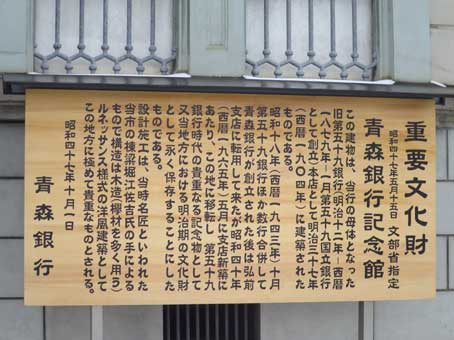 重要文化財
昭和四十七年五月十五日 文部省指定
青森銀行記念館
この建物は、当行の母体となった
旧第五十九銀行(明治十二年―西暦
一八七九年・一月第五十九国立銀行
として創立)本店として明治三十七年
(西暦一九〇四年)に建築された
ものである。
昭和十八年(西暦一九四三年)十月
第五十九銀行ほか数行合併して
青森銀行が創立された後は弘前
支店に転用して来たが昭和四十年
(西暦一九六五年)五月に支店新築に
あたり、この地に移転し、第五十九
銀行時代の貴重なる記念物として
又当地方における明治期の文化財
として永く保存することにした
ものである。
設計施工は、当時名匠といわれた
当市の棟梁堀江佐吉氏の手による
もので構造は木造(欅材を多く用う)
ルネッサンス様式の洋風建築として
この地方に極めて貴重なものとされる。
昭和四十七年十月一日
青森銀行